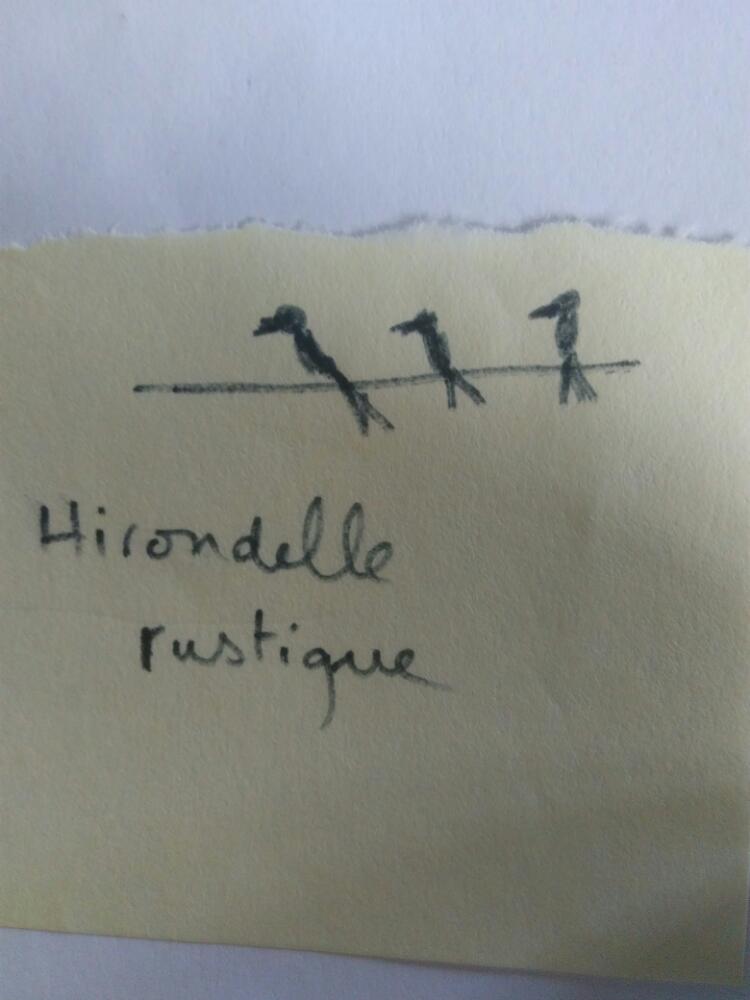 Hirondelle
rustique